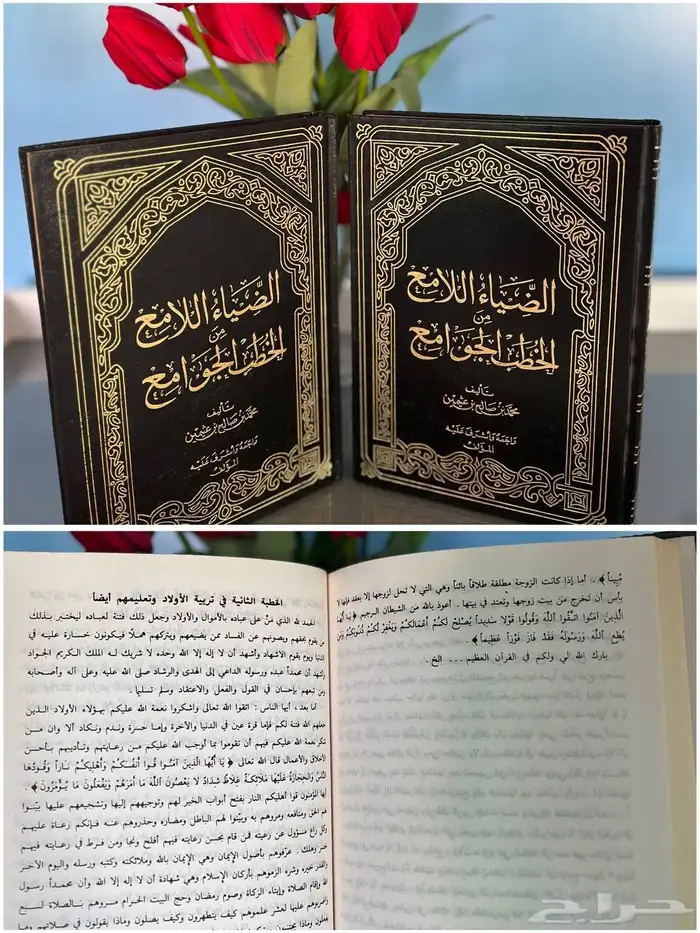 الضياء اللامع
من
الخطب الجوامع
تأليف
محمد بن صالح بن عثيمين
راجعه وأشرف عليه
المؤلف
الضياء اللامع
من
الخطب الجوامع
تأليف
محمد بن صالح بن عثيمين
راجعه وأشرف عليه
المؤلف
مُبِيناً﴾ . أما إذا كانت الزوجة مطلقة طلاقاً بائناً وهي التي لا تحل لزوجها إلا بعقد فإنها لا
بأس أن تخرج من بيت زوجها وتعتد في بيتها . أعوذ بالله من الشيطان الرجيم ﴿يَا أَيُّهَا
الَّذِينَ آمَنُوا اتَّقُوا اللَّهَ وَقُولُوا قَوْلًا سَدِيداً يُصْلِحْ لَكُمْ أَعْمَالَكُمْ وَيَغْفِرْ لَكُمْ ذُنُوبَكُمْ وَمَن
يُطِعِ اللَّهَ وَرَسُولَهُ فَقَدْ فَازَ فَوْزاً عَظِيماً﴾ .
بارك الله لي ولكم في القرآن العظيم ... الخ .
الخطبة الثانية في تربية الأولاد وتعليمهم أيضاً
الحمد لله الذي منَّ على عباده بالأموال والأولاد وجعل ذلك فتنة لعباده ليختبر بذلك
من يقوم بحقهم ويصونهم عن الفساد ممن يضيعهم ويتركهم هملًا فيكونون خسارة عليه في
الدنيا ويوم يقوم الأشهاد وأشهد أن لا إله إلا الله وحده لا شريك له الملك الكريم الجواد
وأشهد أن محمداً عبده ورسوله الداعي إلى الهدى والرشاد صلى الله عليه وعلى آله وأصحابه
ومن تبعهم بإحسان في القول والفعل والاعتقاد وسلم تسليما .
أما بعد ، أيها الناس : اتقوا الله تعالى واشكروا نعمة الله عليكم بهؤلاء الأولاد الذين
جعلهم الله فتنة لكم فإما قرة عين في الدنيا والآخرة وإما حسرة وندم ونكاد ألا وان من
شكر نعمة الله عليكم فيهم أن تقوموا بما أوجب الله عليكم من رعايتهم وتأديبهم بأحسن
الأخلاق والأعمال قال الله تعالى ﴿يَا أَيُّهَا الَّذِينَ آمَنُوا قُوا أَنْفُسَكُمْ وَأَهْلِيكُمْ نَاراً وَقُودُهَا
النَّاسُ وَالْحِجَارَةُ عَلَيْهَا مَلَائِكَةٌ غِلَاظٌ شِدَادٌ لَا يَعْصُونَ اللَّهَ مَا أَمَرَهُمْ وَيَفْعَلُونَ مَا يُؤْمَرُونَ﴾ .
أيها المؤمنون قوا أهليكم النار بفتح أبواب الخير لهم وتوجيههم إليها وتشجيعهم عليها بيّنوا
لهم الحق ومنافعه ومروهم به وبيّنوا لهم الباطل ومضاره وحذروهم عنه فإنكم رعاة عليهم
وكل راع مسؤول عن رعيته فمن قام بحسن رعايته فيهم أفلح ونجا ومن فرط في رعايته فيهم
خسر وهلك . عرّفوهم بأصول الإيمان وهي الإيمان بالله وملائكته وكتبه ورسله واليوم الآخر
والقدر خيره وشره الزموهم بأركان الإسلام وهي شهادة أن لا إله إلا الله وأن محمداً رسول
الله وإقام الصلاة وإيتاء الزكاة وصوم رمضان وحج البيت الحرام مروهم بالصلاة لسبع
واضربوهم عليها لعشر علموهم كيف يتطهرون وكيف يصلون وماذا يقولون في صلاتهم وما
حراج